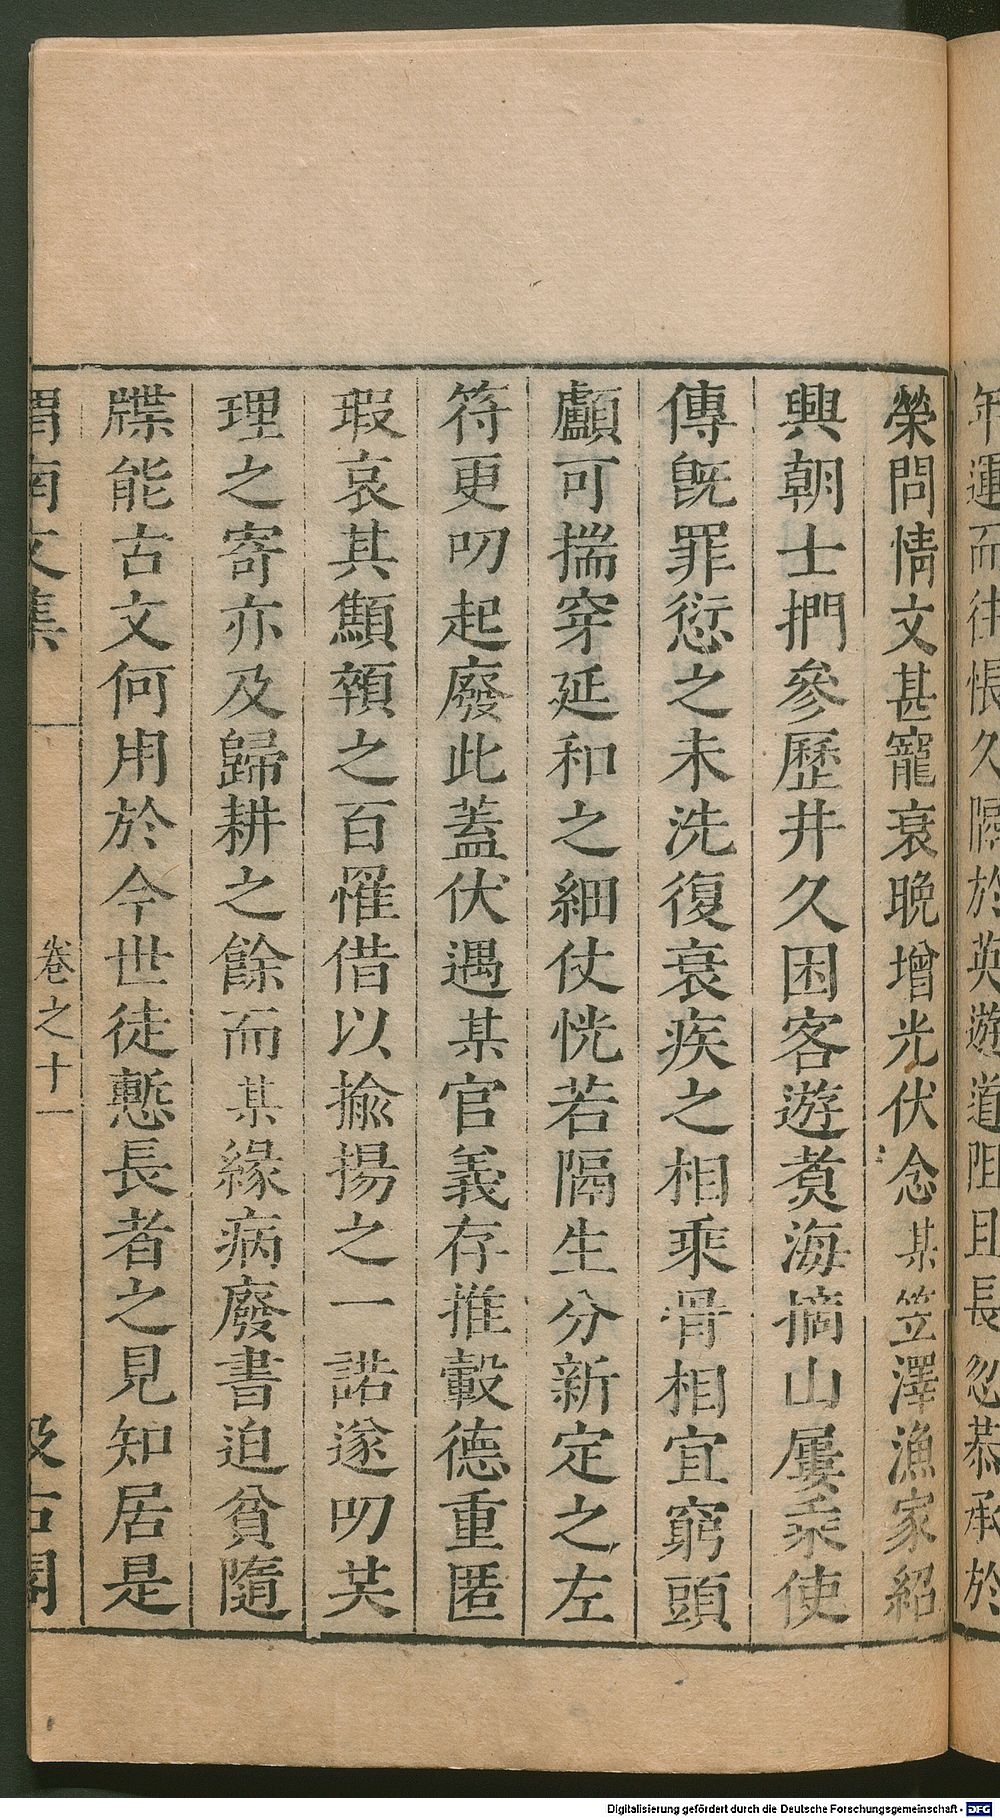 年運而往悵久隔於英遊道阻且長忽恭承於
榮問情文甚寵衰晚增光伏念某笠澤漁家紹
興朝士捫參歷井久困客遊煑海摘山屢乘使
傳旣罪愆之未洗復衰疾之相乘骨相宜窮頭
顱可揣穿延和之細仗恍若隔生分新定之左
符更叨起廢此蓋伏遇某官義存推轂德重匿
瑕哀其顦顇之百罹借以揄揚之一諾遂叨芺
理之寄亦及歸耕之餘而某緣病廢書迫貧隨
牒能古文何用於今世徒慙長者之見知居是
渭南文集 卷之十一 汲古閣
Digitalisierung gefördert durch die Deutsche Forschungsgemeinschaft - DFG